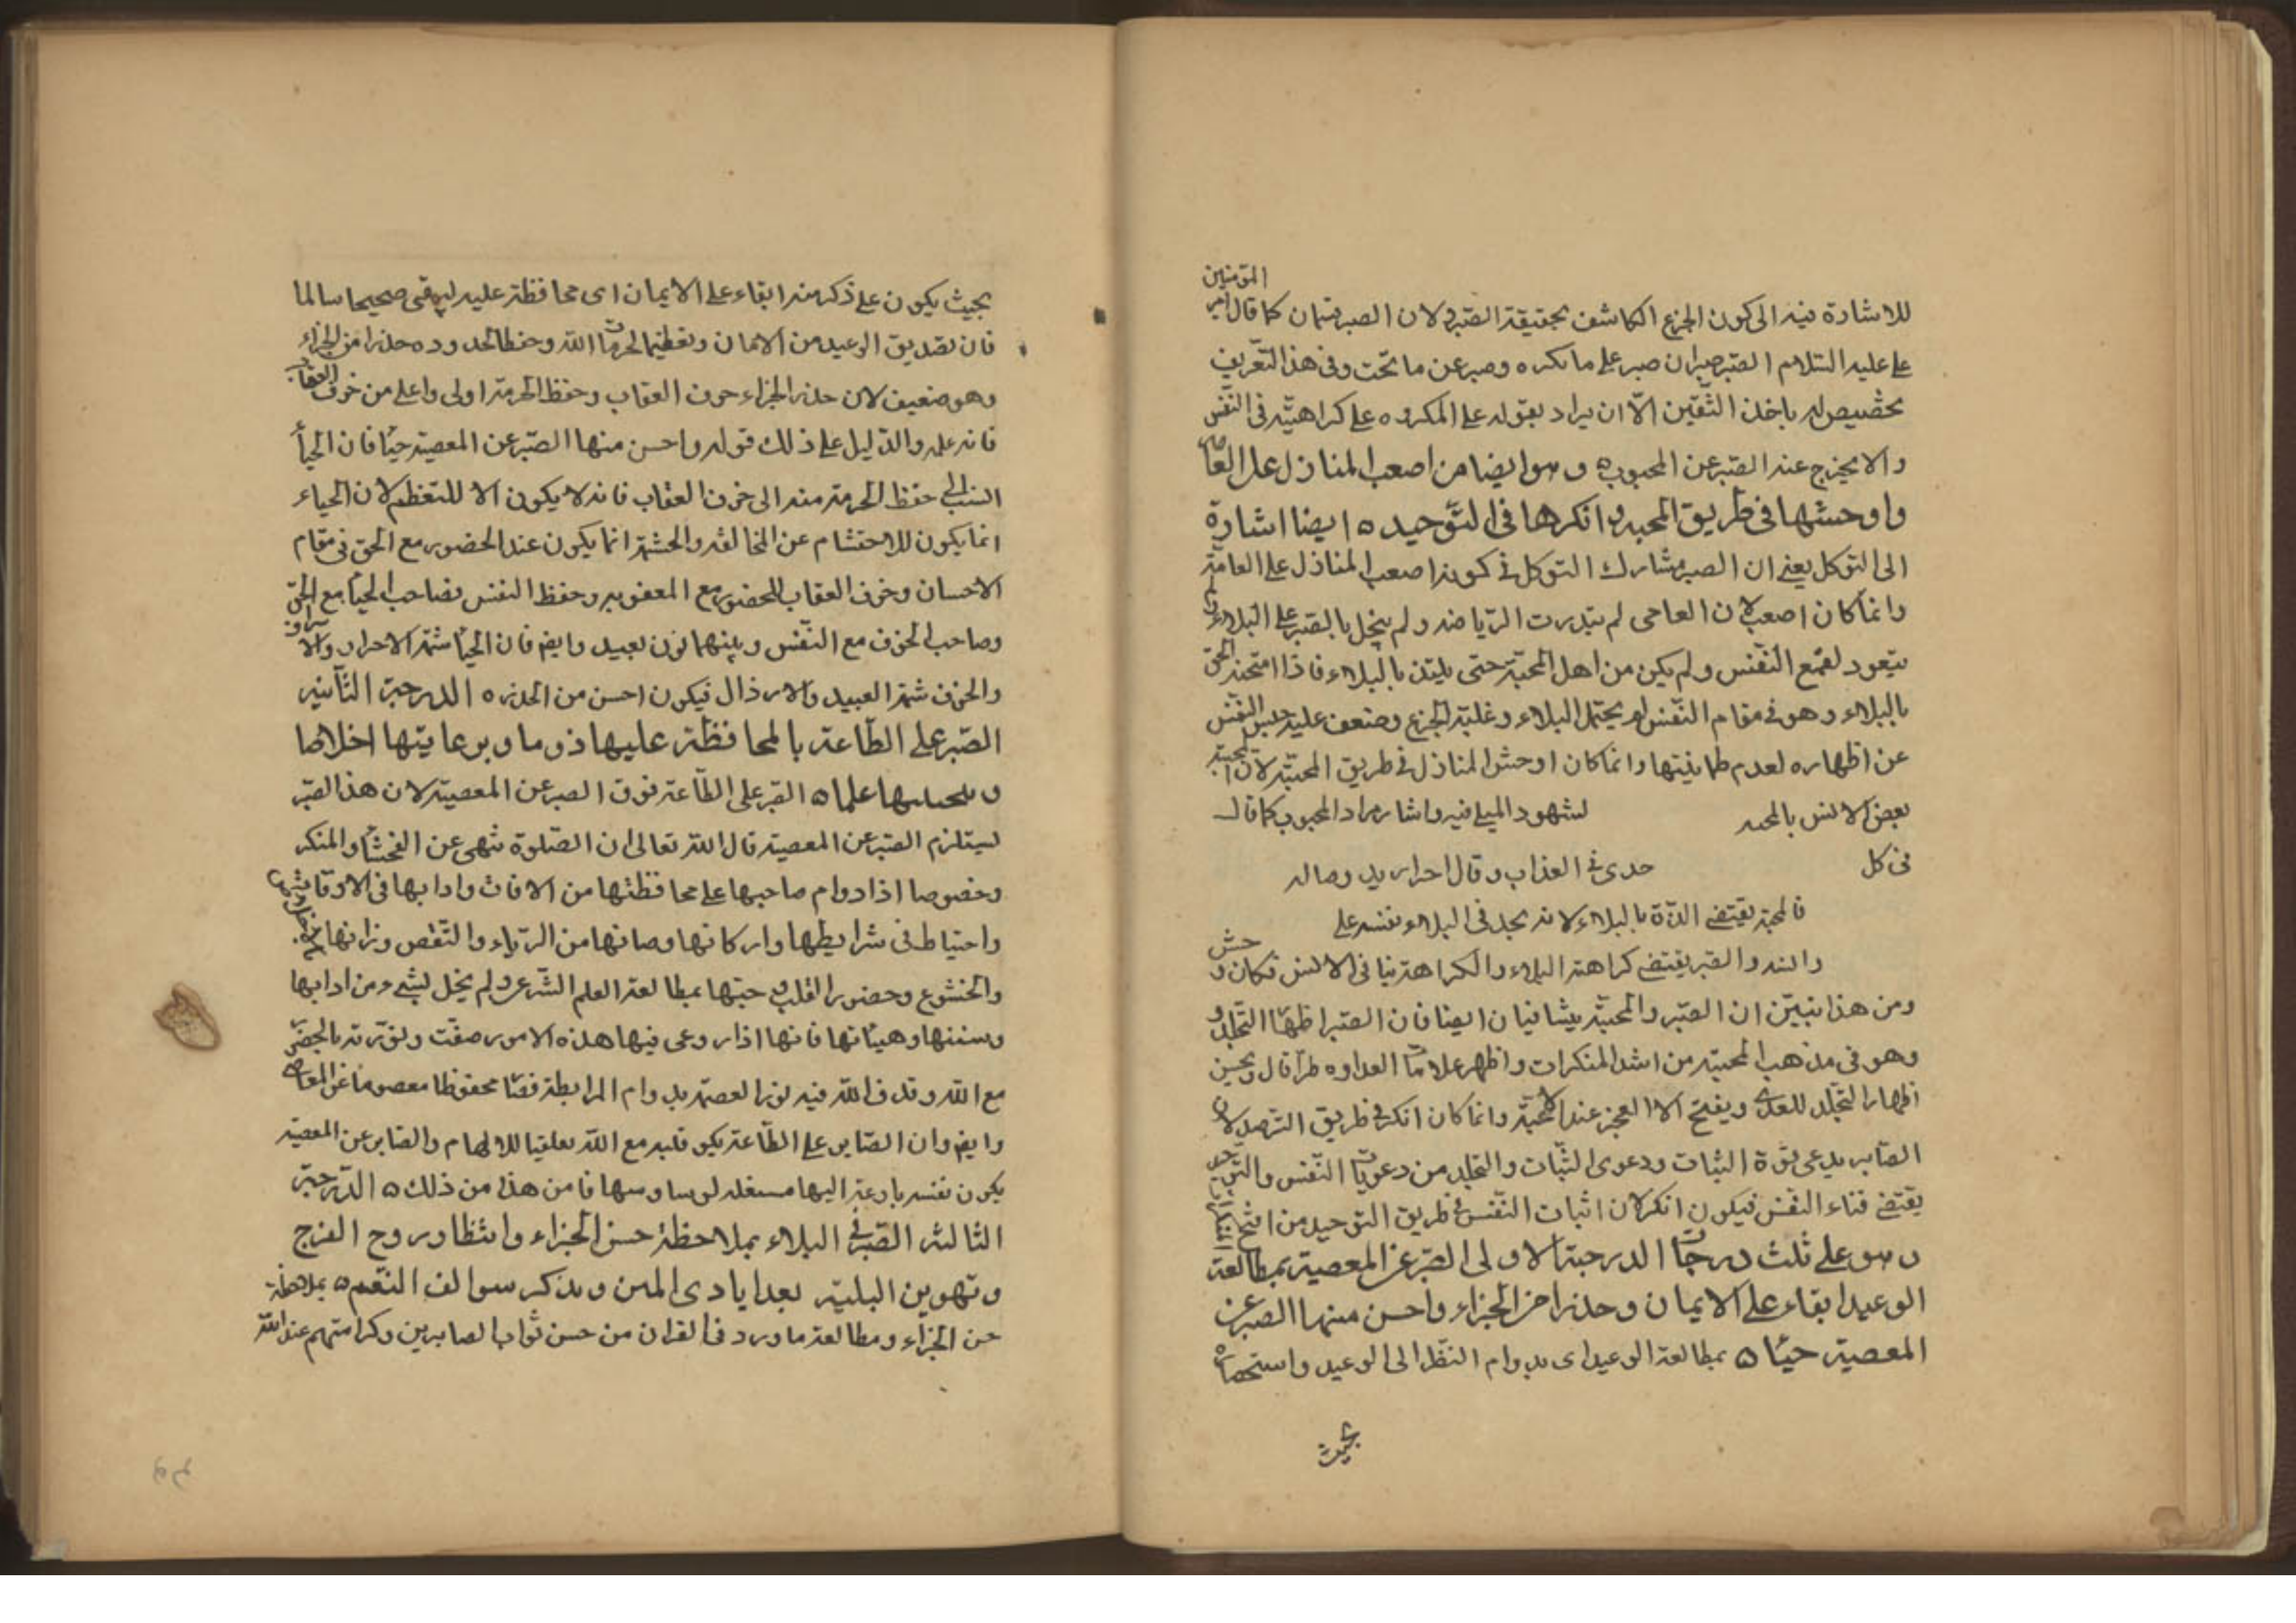 المؤمنين
للاشارة فيه الى كون الجزع الكاشف بحقيقة الصبر ولان الصبر قسمان كما قال امير
على عليه السلام الصبر صبران صبر على ما تكره وصبر عن ما تحب وفى هذا التعريف
تخصيص له باحد القسمين الا ان يراد بقوله على المكروه على كراهيته فى النفس
والا يخرج عنه الصبر عن المحبوب ٥ وهو ايضا من اصعب المنازل على العامة
واوحشها فى طريق المحبة وانكرها فى التوحيد ٥ ايضا اشارة
الى التوكل يعنى ان الصبر مشارك التوكل فى كونه اصعب المنازل على العامة
وانما كان اصعب لان العامى لم يتدرب الرياضة ولم يتحل بالصبر على البلاء ولم
يتعود لقمع النفس ولم يكن من اهل المحبة حتى يلتذ بالبلاء فاذا امتحنه الحق
بالبلاء وهو فى مقام النفس لم يحتمل البلاء وغلبة الجزع وضعف عليه حبس النفس
عن اظهاره لعدم طمانينتها وانما كان اوحش المنازل فى طريق المحبة لان المحبة
بعض الانس بالمحبه لشهود الميل فيه واشار مراد المحبوب كما قال
فى كل حدى فى العذاب وقال احر اريد وصاله
فالمحبة يقتضى اللذة بالبلاء لانه يجد فى البلاء نفسه على
والصبر يقتضى كراهة البلاء والكراهة ينافى الانس فكان وحش
ومن هذا تبين ان الصبر والمحبة يتنافيان ايضا فان الصبر اظهار التجلد و
وهو فى مذهب المحبة من اشد المنكرات واظهر علامات العداوه طرا قال ويحسن
اظهار التجلد للعدى ويقبح الا العجز عند الاحبة وانما كان انكر فى طريق التوحيد لان
الصابر يدعى قوة الثبات ودعوى الثبات والتجلد من دعويات النفس والتوحيد
يقتضى فناء النفس فيكون انكر لان اثبات النفس فى طريق التوحيد من اقبح المنكرات
وهو على ثلث درجات الدرجة الاولى الصبر عن المعصية بمطالعة
الوعيد ابقاء على الايمان وحذرا من الجزاء واحسن منها الصبر عن
المعصية حياء ٥ بمطالعة الوعيد اى بدوام النظر الى الوعيد واستحضاره
بحيث
بحيث يكون على ذكر منه ابقاء على الايمان اى محافظة عليه ليبقى صحيحا سالما
فان تصديق الوعيد من الايمان وتعظيما لحرمات الله وحفظا لحدوده حذرا من الجزاء
وهو ضعيف لان حذر الجزاء خوف العقاب وحفظ الحرمة اولى واعلى من خوف العقاب
فانه علم والدليل على ذلك قوله واحسن منها الصبر عن المعصية حياء فان الحياء
انسب الى حفظ الحرمة منه الى خوف العقاب فانه لا يكون الا للتعظيم لان الحياء
انما يكون للاحتشام عن المخالفة والحشمة انما يكون عند الحضور مع الحق فى مقام
الاحسان وخوف العقاب للحضور مع العقوبة وحفظ النفس فصاحب الحياء مع الحق
وصاحب الخوف مع النفس وبينهما بون بعيد وايضا فان الحياء شيمة الاحرار والاشراف
والخوف شيمة العبيد والارذال فيكون احسن من الحذر ٥ الدرجة الثانية
الصبر على الطاعة بالمحافظة عليها دوما وبرعايتها اخلاصا
وبتحسينها علما ٥ الصبر على الطاعة فوق الصبر عن المعصية لان هذا الصبر
يستلزم الصبر عن المعصية قال الله تعالى ان الصلوة تنهى عن الفحشاء والمنكر
وخصوصا اذا دوام صاحبها على محافظتها من الافات وادابها فى الاوقات
واحتياط فى شرايطها واركانها وصانها من الرياء والنقص وزانها
والخشوع وحضور القلب وحبها بمطالعة العلم الشرعى ولم يخل بشئ من ادابها
وسننها وهيئاتها فانها اذا روعى فيها هذه الامور صفت ونورته بالحضور
مع الله وقذف الله فيه نور العصمة بدوام المرابطة فصار محفوظا معصوما عن المعاصى
وايضا وان الصابر على الطاعة يكون قلبه مع الله متلقيا للالهام والصابر عن المعصية
يكون نفسه داعية اليها مستغلة لوساوسها فاين هذا من ذلك ٥ الدرجة
الثالثة الصبر فى البلاء بملاحظة حسن الجزاء وانتظار روح الفرج
وتهوين البلية بعد ايادى المنن وبذكر سوالف النعم ٥ بملاحظة
حسن الجزاء ومطالعة ما ورد فى القران من حسن ثواب الصابرين وكرامتهم عند الله